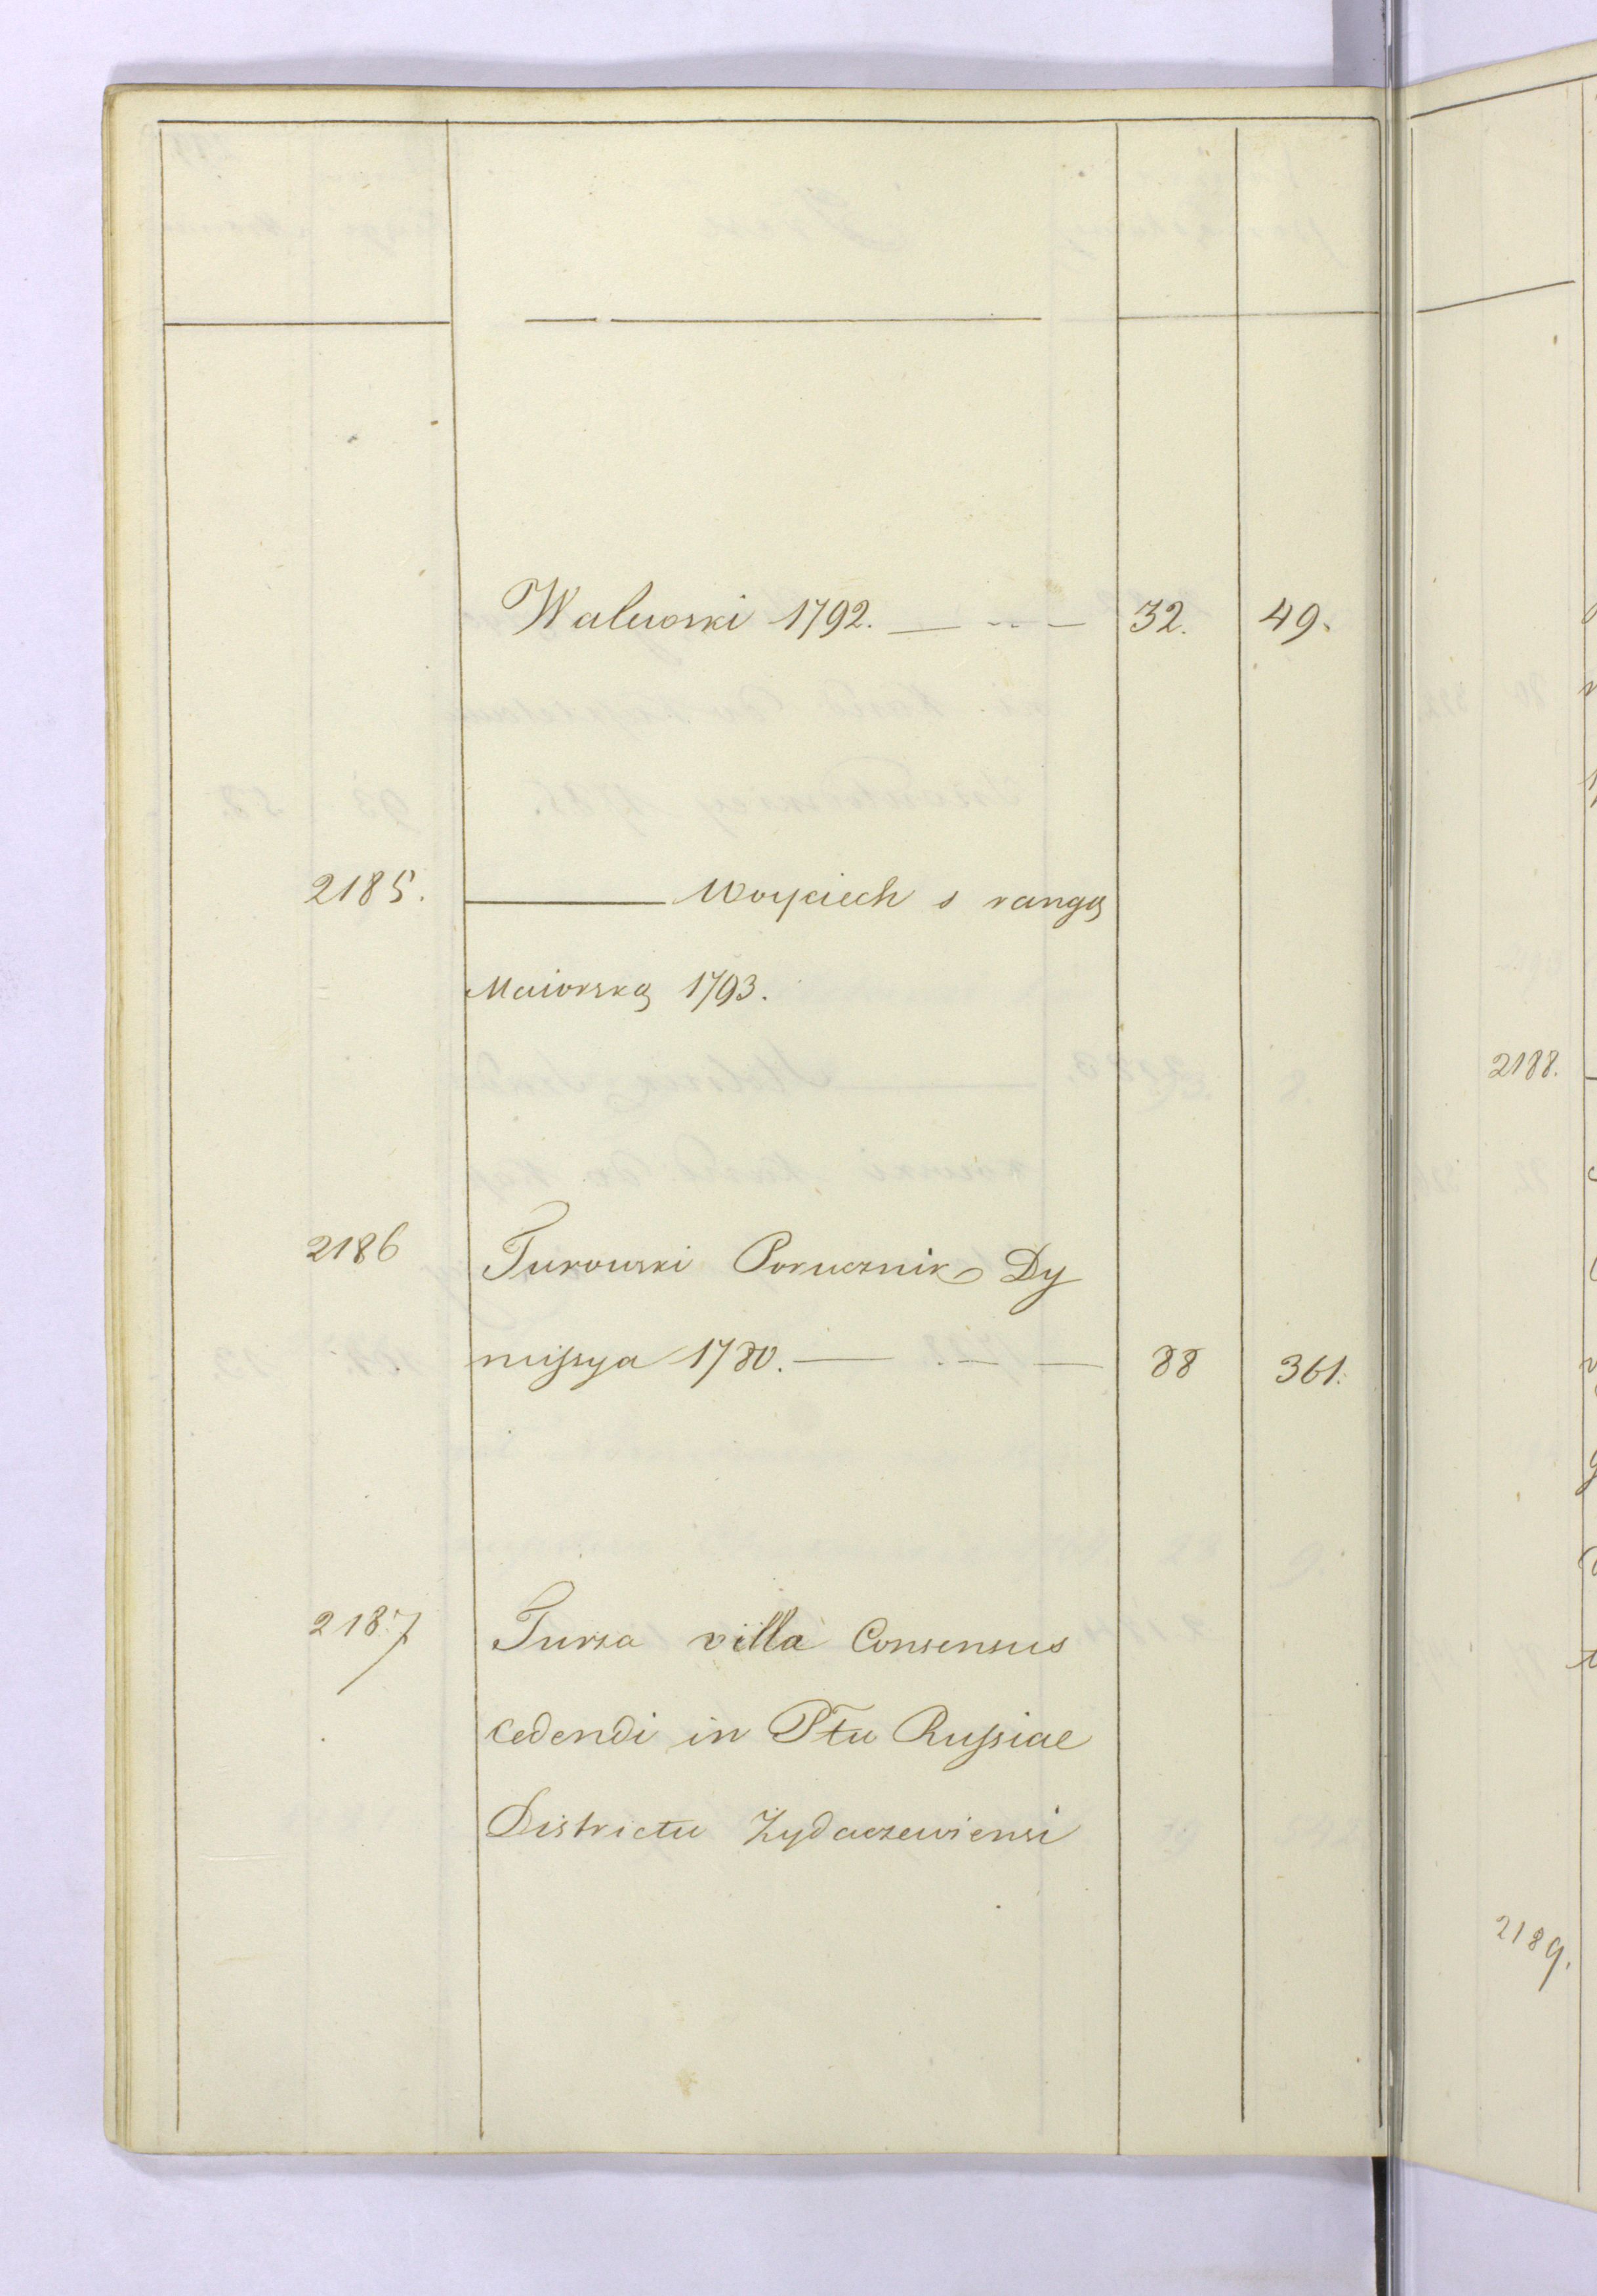 Walewski 1792. — -- — 32. 49.
2185. ——— Woyciech s rangą
Maiorską 1793.
2186 Turowski Porucznik Dy
missya 1780. — . — — 88 361.
2187 Tursa villa Consensus
cedendi in Pttu Russiae
Districtu Zydaczewiensi
2188.
2189.